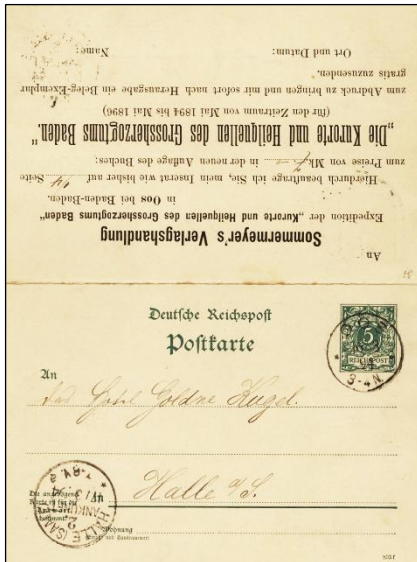 An
Sommermeyer's Verlagshandlung
Expedition der „Kurorte und Heilquellen des Grossherzogtums Baden"
in Oos bei Baden-Baden.
Hierdurch beauftrage ich Sie, mein Inserat wie bisher auf 1/4 Seite
zum Preise von Mk. in der neuen Auflage des Buches:
„Die Kurorte und Heilquellen des Grossherzogtums Baden."
(für den Zeitraum von Mai 1894 bis Mai 1896)
zum Abdruck zu bringen und mir sofort nach Herausgabe ein Beleg-Exemplar
gratis zuzusenden.
Ort und Datum: Name:
Deutsche Reichspost
Postkarte
5
REICHSPOST
OOS
3-4N.
An
das Hotel Goldne Kugel.
Halle a/S.
HALLE (SAALE)
Die anhängende
Karte ist für die
Antwort
bestimmt.
Wohnung
(Straße und Hausnummer)